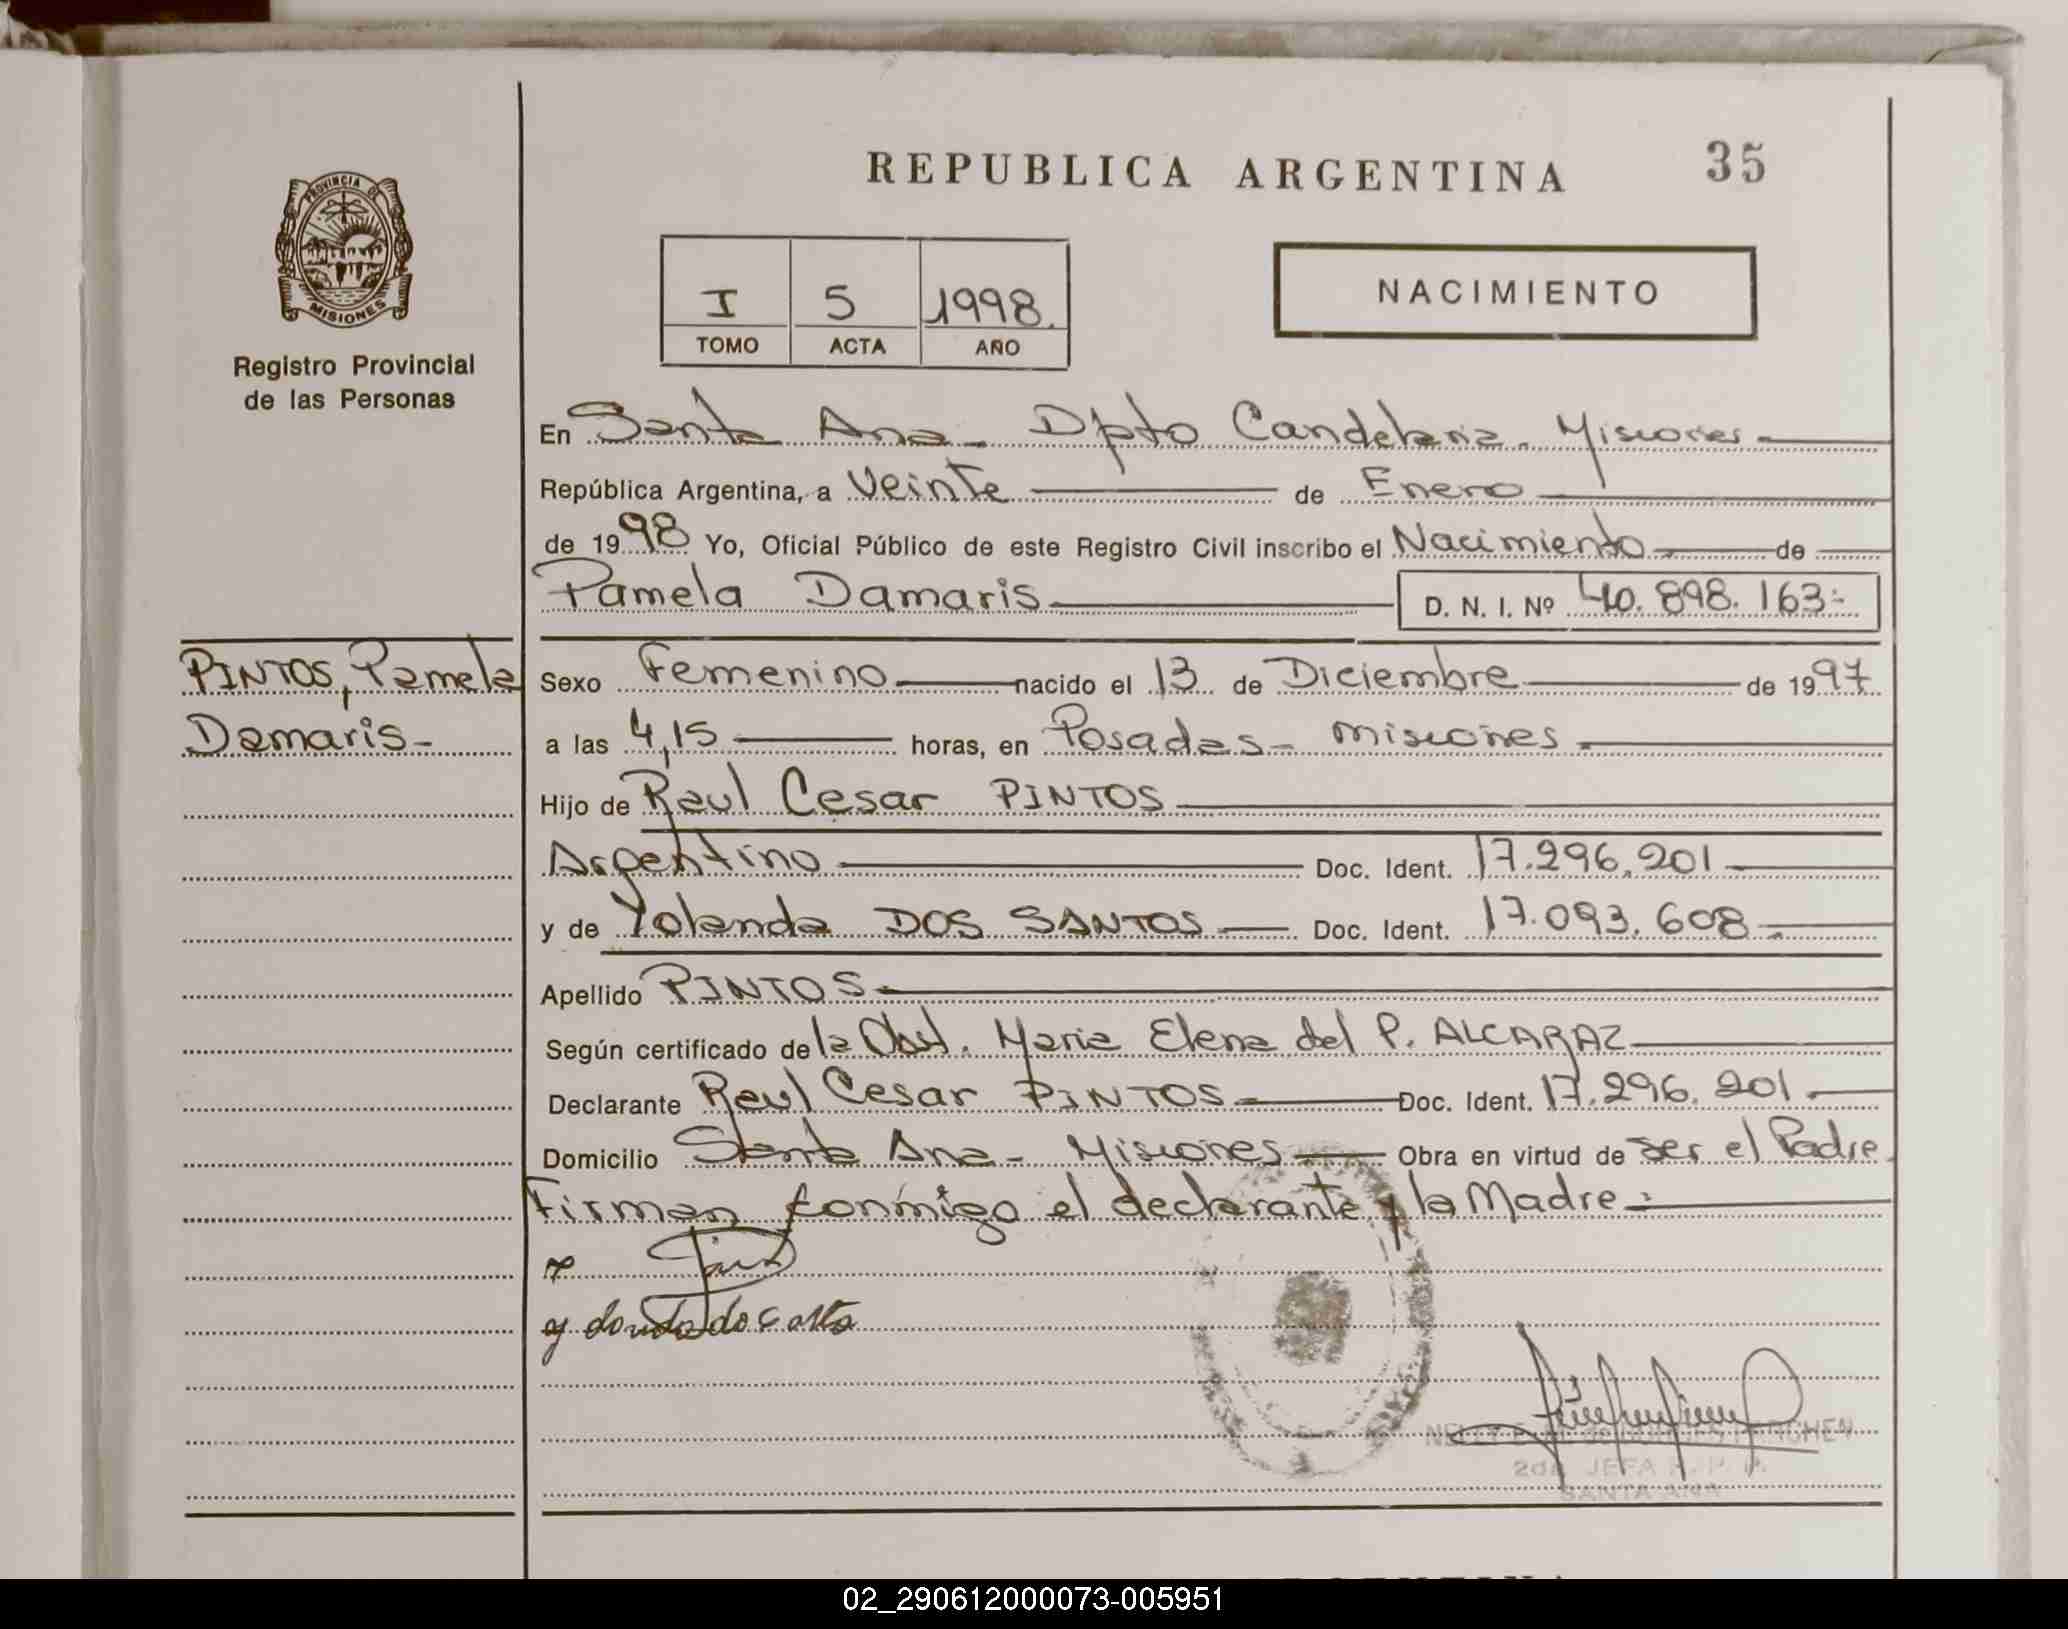 REPUBLICA ARGENTINA 35
PROVINCIA DE
MISIONES
Registro Provincial
de las Personas
I 5 1998.
TOMO ACTA AÑO
NACIMIENTO
En Santa Ana - Dpto Candelaria. Misiones
República Argentina, a Veinte de Enero
de 1998 Yo, Oficial Público de este Registro Civil inscribo el Nacimiento de
Pamela Damaris D. N. I. Nº 40.898.163
PINTOS, Pamela
Damaris
Sexo Femenino nacido el 13 de Diciembre de 1997
a las 4,15 horas, en Posadas - misiones
Hijo de Raul Cesar PINTOS
Argentino Doc. Ident. 17.296.201
y de Yolanda DOS SANTOS Doc. Ident. 17.093.608
Apellido PINTOS
Según certificado de la Obst. Maria Elena del P. ALCARAZ
Declarante Raul Cesar PINTOS Doc. Ident. 17.296.201
Domicilio Santa Ana - Misiones Obra en virtud de ser el Padre
Firman conmigo el declarante y la Madre
2da JEFA
SANTA ANA
02_290612000073-005951